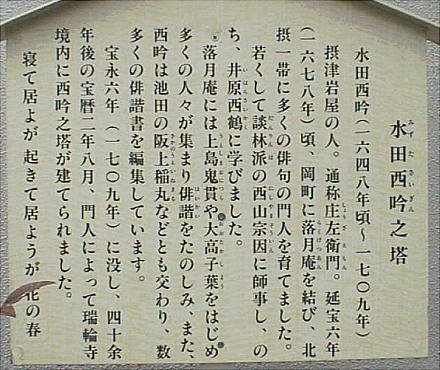 水田西吟之塔
みずたさいぎん
水田西吟(一六四八年頃～一七〇九年)
摂津岩屋の人。通称庄左衛門。延宝六年
(一六七八年)頃、岡町に落月庵を結び、北
摂一帯に多くの俳句の門人を育てました。
若くして談林派の西山宗因に師事し、の
ち、井原西鶴に学びました。
落月庵には上島鬼貫や大高子葉をはじめ
多くの人々が集まり俳諧をたのしみ、また、
西吟は池田の阪上稲丸などとも交わり、数
多くの俳諧書を編集しています。
宝永六年(一七〇九年)に没し、四十余
年後の宝暦二年八月、門人によって瑞輪寺
境内に西吟之塔が建てられました。
寝て居よが 起きて居ようが 花の春